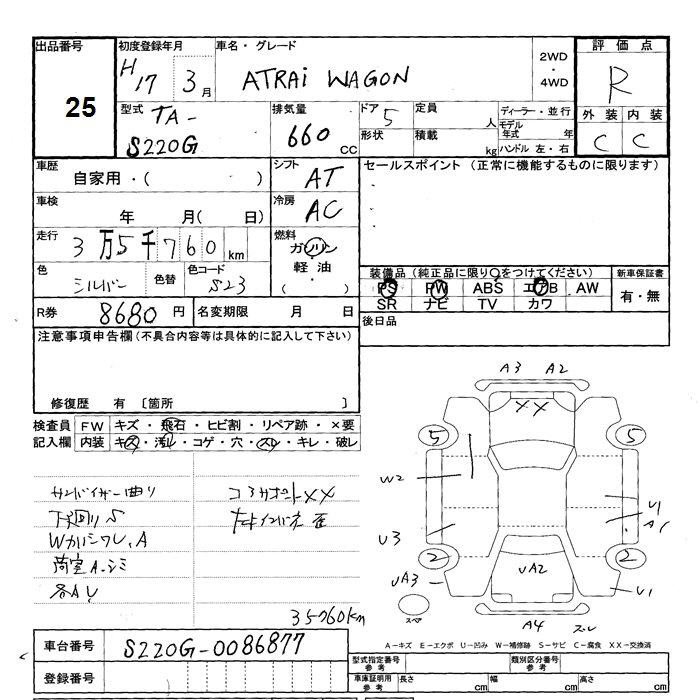 出品番号
25
初度登録年月
H17 3月
車名・グレード
ATRAI WAGON
2WD
・
4WD
評価点
R
型式
TA-
S220G
排気量
660 CC
ドア
5
定員
人
形状
積載
kg
ディーラー・並行
モデル年式 年
ハンドル 左・右
外装 内装
C C
車歴
自家用・( )
シフト
AT
車検
年 月( 日)
冷房
AC
走行
3万5千760km
燃料
ガソリン
軽油
( )
色
シルバー
色替
色コード
S23
R券
8680円
名変期限
月 日
セールスポイント (正常に機能するものに限ります)
装備品 (純正品に限り○をつけてください)
PS PW ABS エアB AW
SR ナビ TV カワ
新車保証書
有・無
後日品
注意事項申告欄 (不具合内容等は具体的に記入して下さい)
修復歴 有 〔箇所 〕
検査員
記入欄
FW キズ・飛石・ヒビ割・リペア跡・×要
内装 キズ・汚れ・コゲ・穴・スレ・キレ・破レ
サンバイザー曲り
下廻りS
Wカバーワレ、A
荷室A・シミ
各AU
コアサポートXX
35760km
A3 A2
XX
5 5
W2
U3
U1
A1
2 2
UA3
UA2
U1
スペア
A4 スレ
A-キズ E-エクボ U-凹み W-補修跡 S-サビ C-腐食 XX-交換済
車台番号
S220G-0086877
登録番号
型式指定番号
参考
類別区分番号
参考
車庫証明用
参考
長さ cm
幅 cm
高さ cm